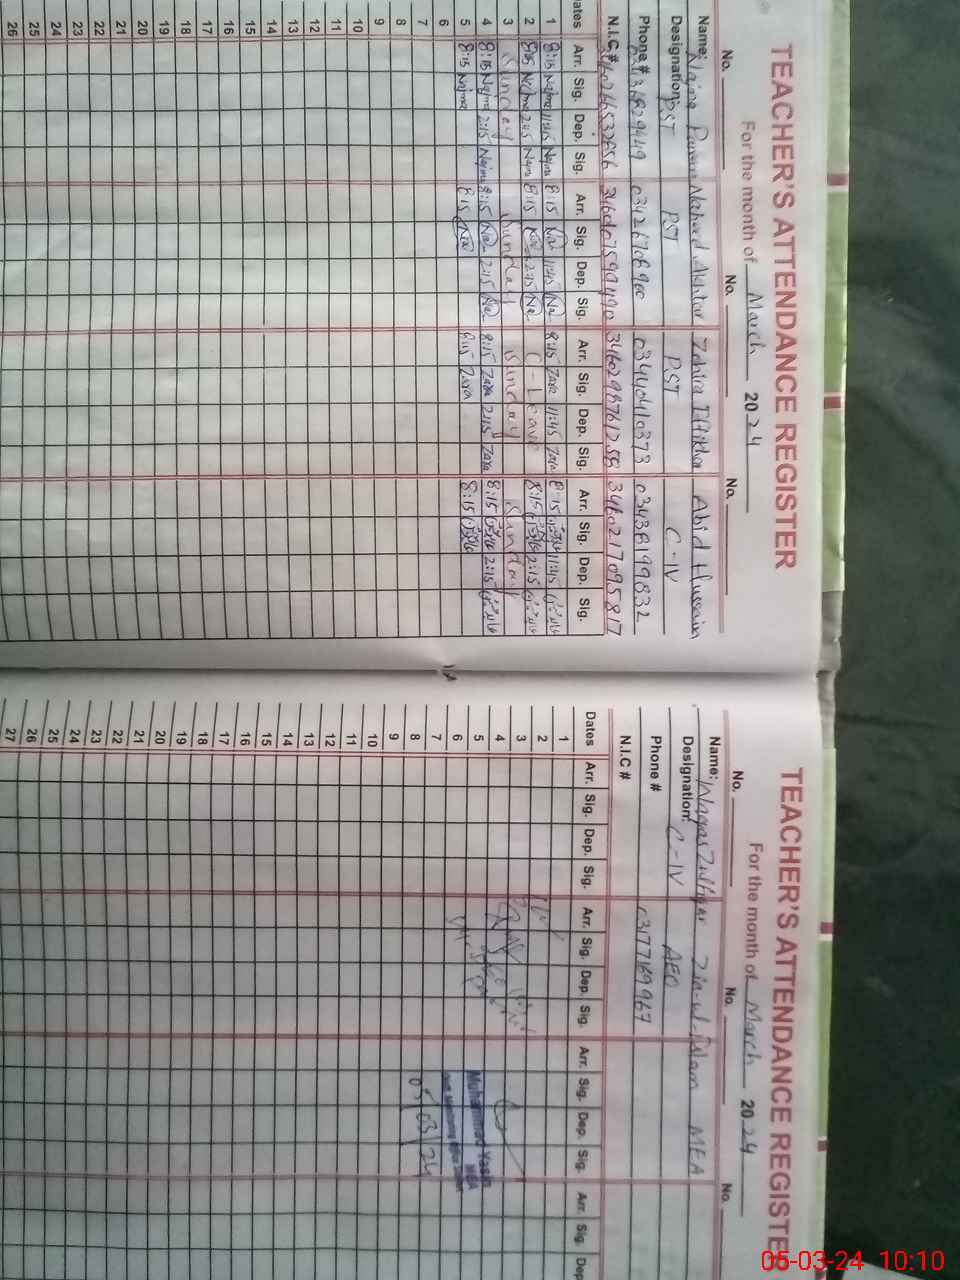 TEACHER'S ATTENDANCE REGISTER
For the month of March 2024
No. No. No. No.
Name: Najma Parveen Naheed Akhtar Zahira Iftikhar Abid Hussain
Designation: PST PST PST C-IV
Phone # 03426706900 03440410373 03438199832
N.I.C #
Dates Arr. Sig. Dep. Sig. Arr. Sig. Dep. Sig. Arr. Sig. Dep. Sig. Arr. Sig. Dep. Sig.
1 8:15 Najma 11:45 Najma 8:15 Na 11:45 Na 8:15 Zara 11:45 Zara 8-15 11:45
2 8:15 Najma 2:15 Najma 8:15 Na 2:15 Na C-Leave 8:15 2:15
3 Sunday Sunday Sunday Sunday
4 8:15 Najma 2:15 Najma 8:15 Na 2:15 Na 8:15 Zara 2:15 Zara 8:15 2:15
5 8:15 Najma 8:15 Na 8:15 Zara 8:15
6
7
8
9
10
11
12
13
14
15
16
17
18
19
20
21
22
23
24
25
26
TEACHER'S ATTENDANCE REGISTE
For the month of March 2024
No. No. No.
Name: Waqas Zulfiqar Zia-ul-Islam MEA
Designation: C-IV AEO
Phone # 03177169967
N.I.C #
Dates Arr. Sig. Dep. Sig. Arr. Sig. Dep. Sig. Arr. Sig. Dep. Sig. Arr. Sig. Dep
1
2
3
4
5 Muhammad Yasin
6 MEA
7
8 05/03/24
9
10
11
12
13
14
15
16
17
18
19
20
21
22
23
24
25
26
27
05-03-24 10:10